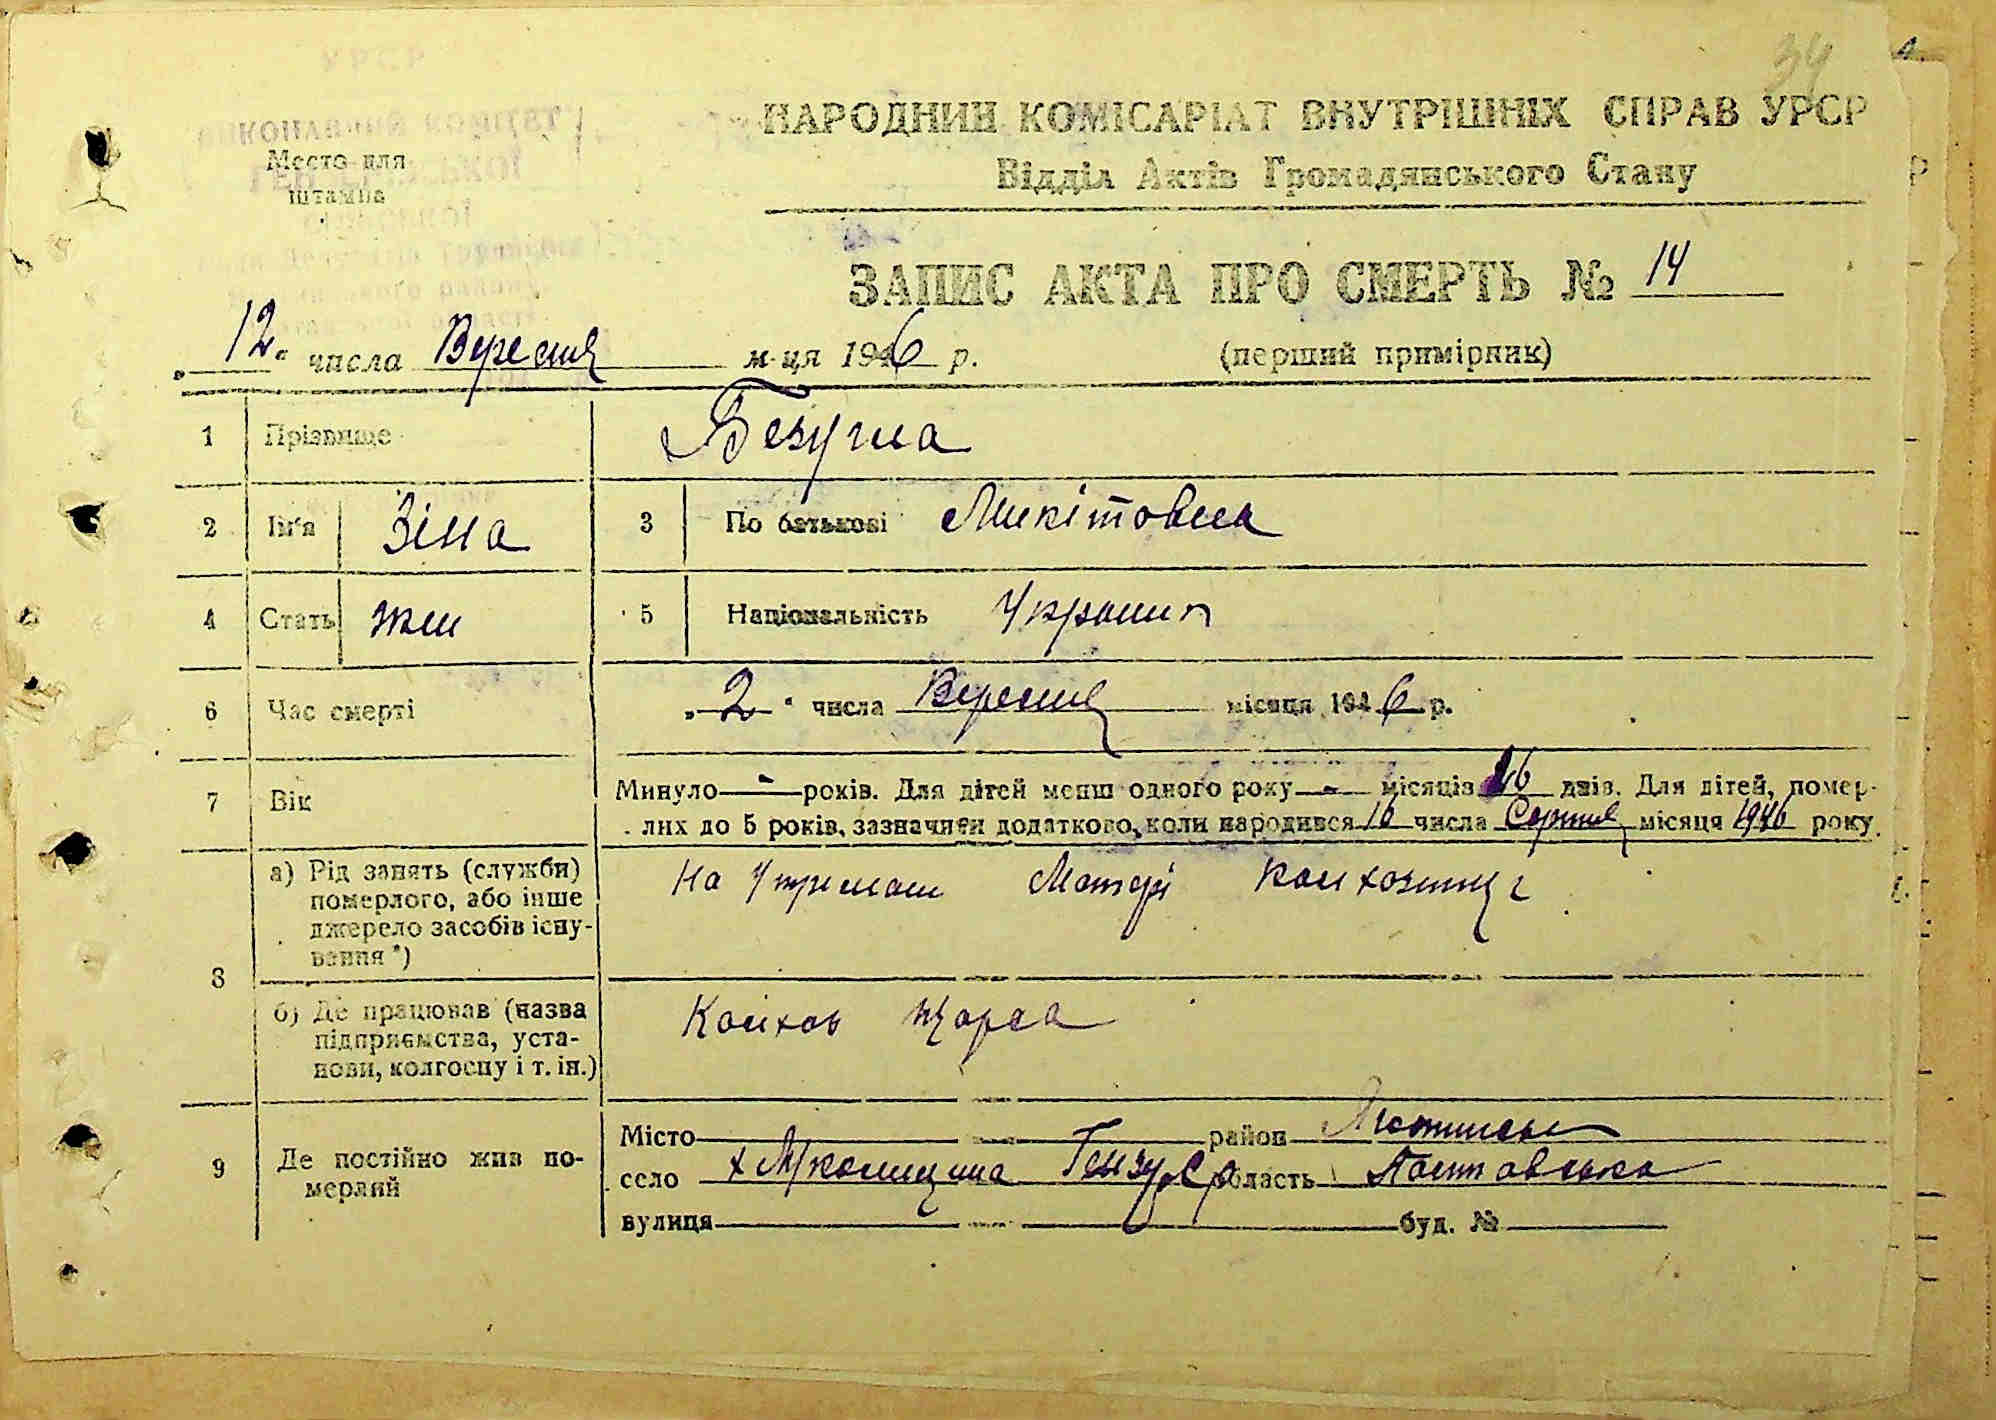 34
НАРОДНИЙ КОМІСАРІАТ ВНУТРІШНІХ СПРАВ УРСР
Место для
штампа
Відділ Актів Громадянського Стану
ЗАПИС АКТА ПРО СМЕРТЬ № 14
„12“ числа Вересня м-ця 1946 р. (перший примірник)
1 Прізвище Безугла
2 Ім'я Зіна 3 По батькові Микітовна
4 Стать жін 5 Національність Україн
6 Час смерті „2“ числа Вересня місяця 1946 р.
7 Вік Минуло - років. Для дітей менш одного року - місяців 16 днів. Для дітей, помер-
лих до 5 років, зазначити додатково, коли народився 16 числа Серпня місяця 1946 року
8 а) Рід занять (служби)
померлого, або інше
джерело засобів існу-
вання *)
На утриман Матері колхозниці
б) Де працював (назва
підприємства, уста-
нови, колгоспу і т. ін.)
Колхоз Щорса
9 Де постійно жив по-
мерлий
Місто район
село х область Полтавська
вулиця буд. №